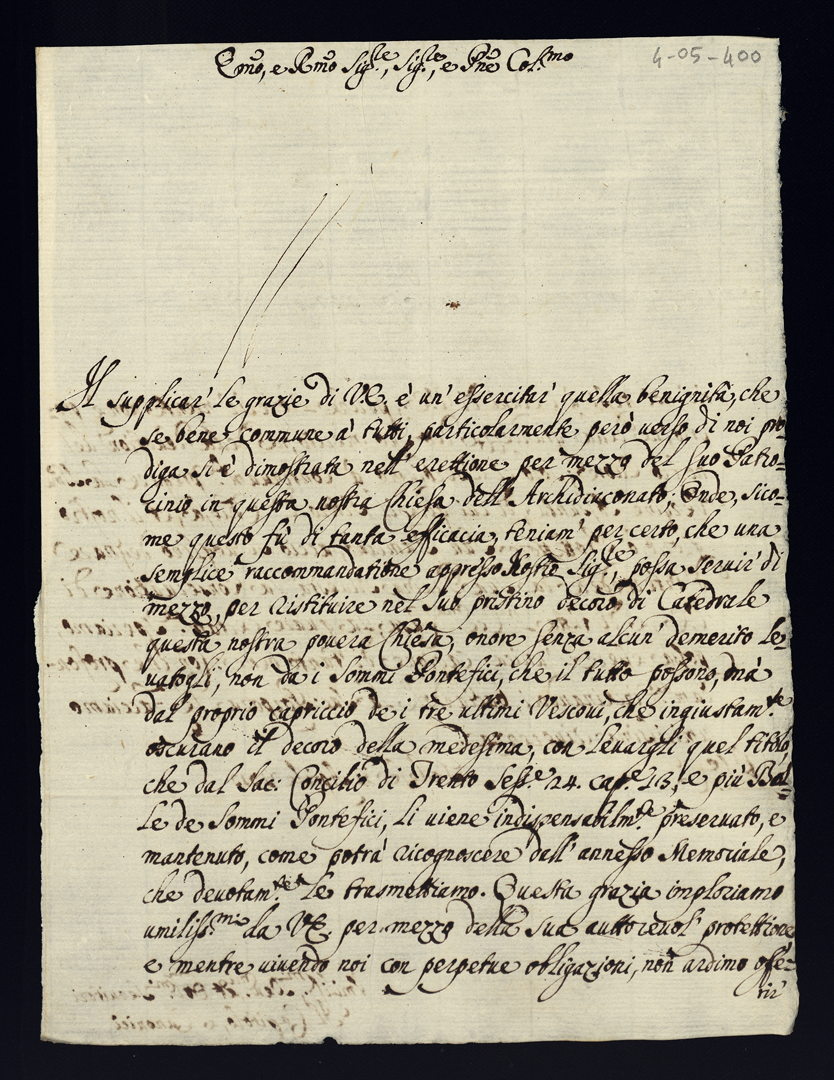 Emo, e Rmo Sig.re, Sig.re, e Pne Col.mo
4-05-400
Il supplicar' le grazie di V.E. è un' essercitar' quella benignità, che
se bene commune à tutti, particolarmente però verso di noi pro-
diga si è dimostrata nell' erettione per mezzo del suo Patro-
cinio in questa nostra Chiesa dell' Archidiaconato; Onde, sico-
me questo fù di tanta efficacia, teniam' per certo, che una
semplice raccommandatione appresso Nostro Sig.re, possa servir' di
mezzo, per ristituire nel suo pristino decoro, di Catedrale
questa nostra povera Chiesa, onore senza alcun' demerito le-
vatogli, non da i Sommi Pontefici, che il tutto possono, mà
dal proprio capriccio de i tre ultimi Vescovi, che ingiustam.te
oscurano il decoro della medesima, con levargli quel titolo
che dal Sac: Concilio di Trento Sess.e 24. cap.e 13, e più Bol-
le de Sommi Pontefici, li viene indispensabilm.te preservato, e
mantenuto, come potrà ricognoscere dall' annesso Memoriale,
che devotam.te le trasmettiamo. Questa grazia imploriamo
umiliss.me da V.E. per mezzo della sua auttorevol' protettione
e mentre vivendo noi con perpetue obligazioni, non ardimo offe-
rir'